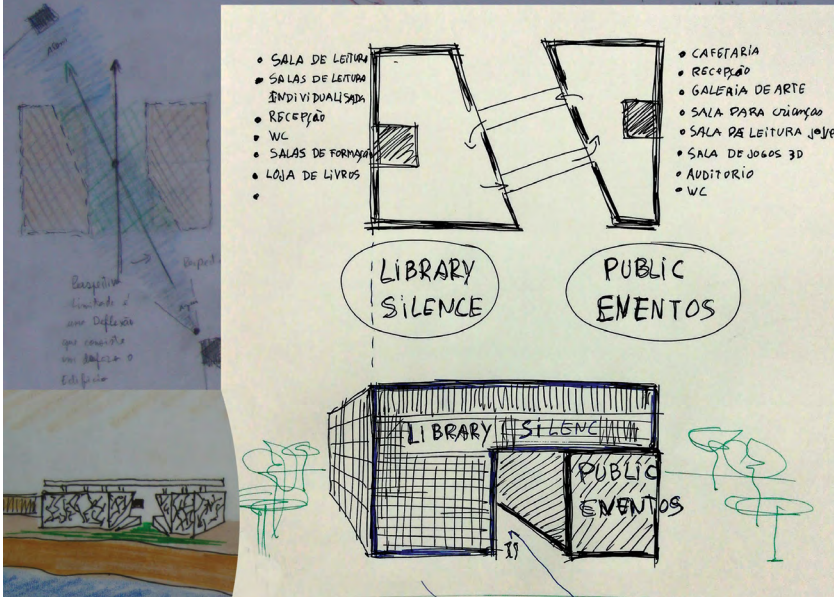 • SALA DE LEITURA
• SALAS DE LEITURA
INDIVIDUALISADA
• RECEPÇÃO
• WC
• SALAS DE FORMAÇÃO
• LOJA DE LIVROS
•
• CAFETARIA
• RECEPÇÃO
• GALERIA DE ARTE
• SALA PARA crianças
• SALA DE LEITURA jove
• SALA DE JOGOS 3D
• AUDITORIO
• WC
LIBRARY
SILENCE
PUBLIC
EVENTOS
LIBRARY SILENC
PUBLIC
EVENTOS
limitada é
uma Deflexão
que consiste
Edifício